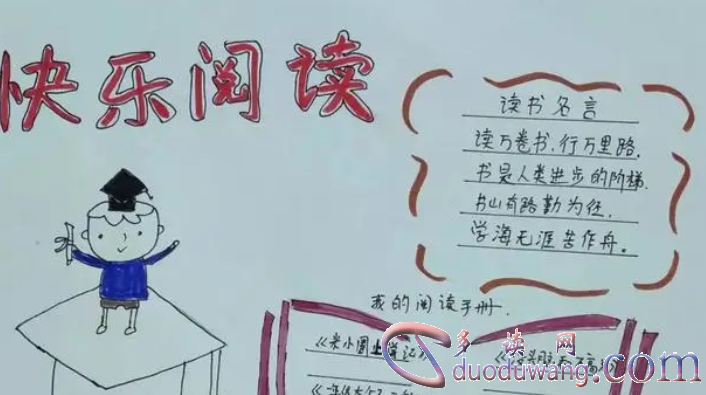 快乐阅读
读书名言
读万卷书,行万里路.
书是人类进步的阶梯.
书山有路勤为径.
学海无涯苦作舟。
我的阅读手册.
《米小圈上学记》
多读网
duoduwang.com